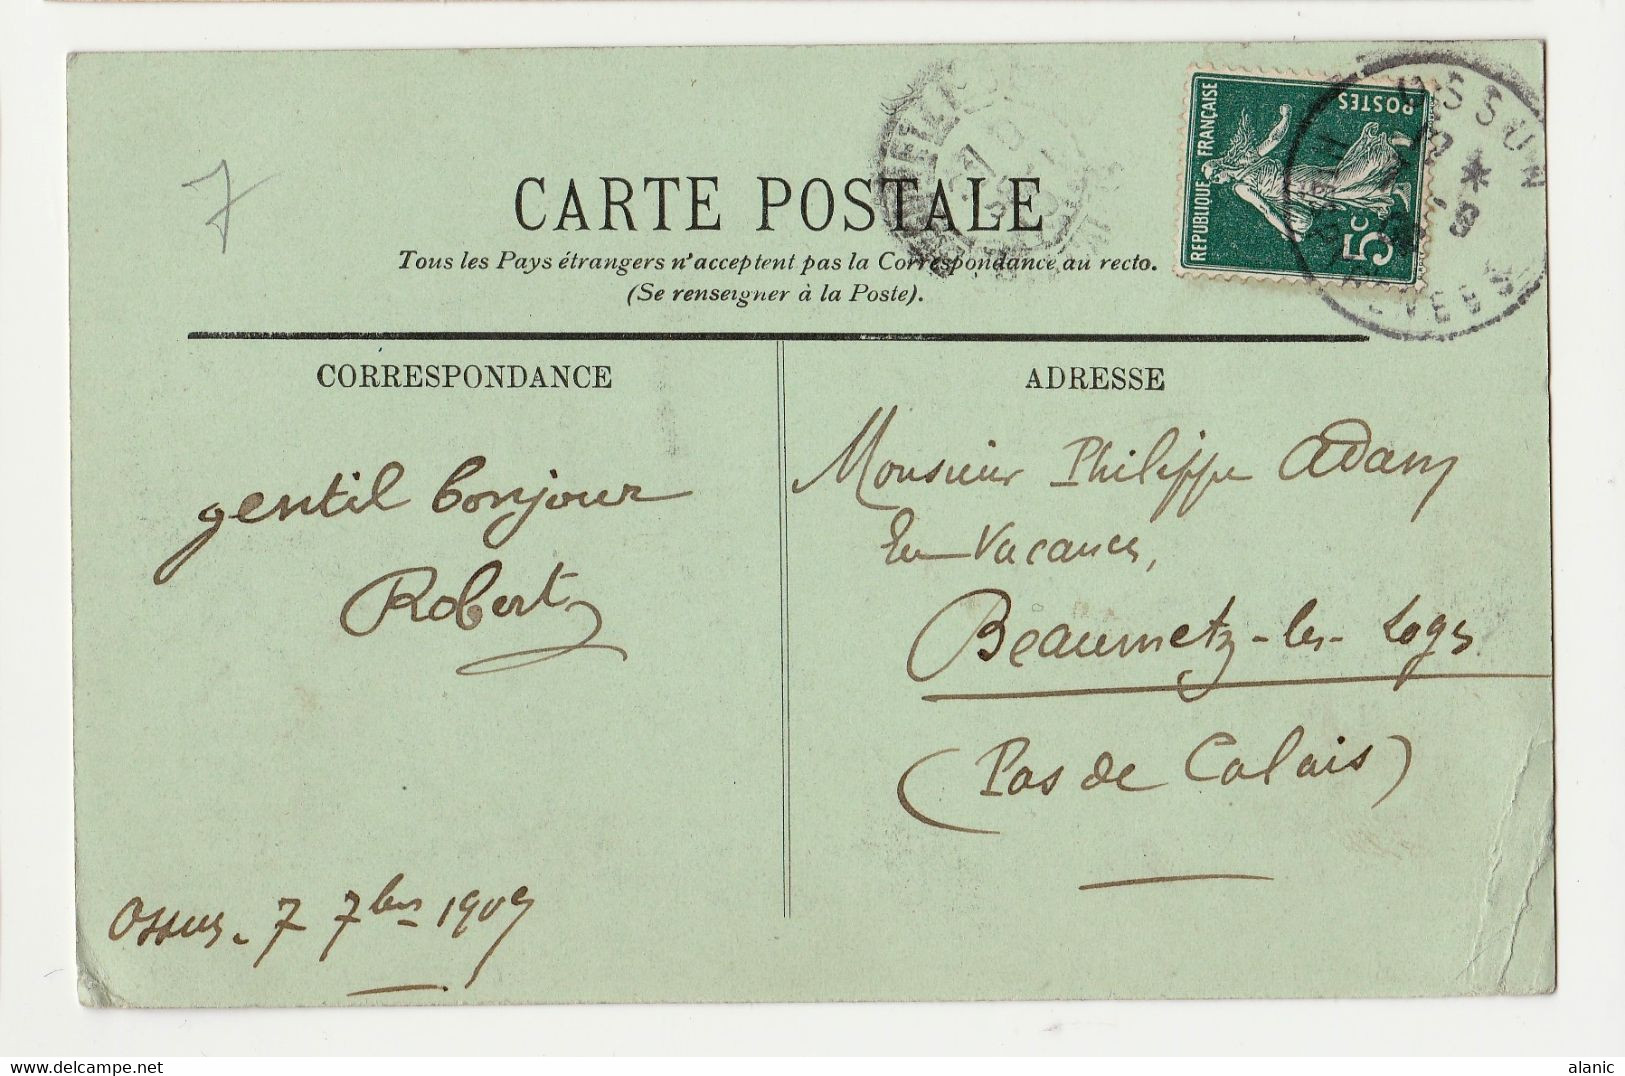 7
CARTE POSTALE
Tous les Pays étrangers n'acceptent pas la Correspondance au recto.
(Se renseigner à la Poste).
REPUBLIQUE FRANÇAISE
POSTES
5c
OSSUN
CORRESPONDANCE
gentil bonjour
Robert
7 7bre 1909
ADRESSE
Monsieur Philippe Adam
En Vacances,
Beaumetz-les-Loges
(Pas de Calais)
alanic